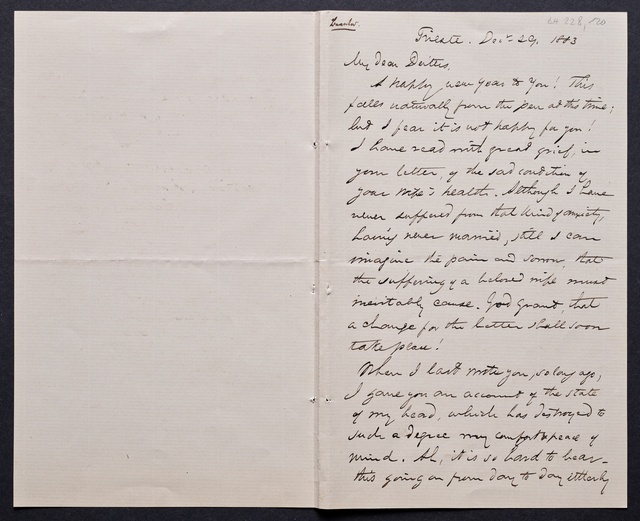 Trieste. Dec. 29. 1883
My dear
A happy new year to you! This
falls naturally from the pen at this time;
but I fear it is not happy for you!
I have read with great grief, in
your letter, of the sad condition of
your wife's health. Although I have
never suffered from that kind of anxiety,
having never married, still I can
imagine the pain and sorrow that
the suffering of a beloved wife must
inevitably cause. God grant, that
a change for the better shall soon
take place!
When I last wrote you, so long ago,
I gave you an account of the state
of my head, which has destroyed to
such a degree my comfort & peace of
mind. Ah, it is so hard to bear–
this going on from day to day utterly